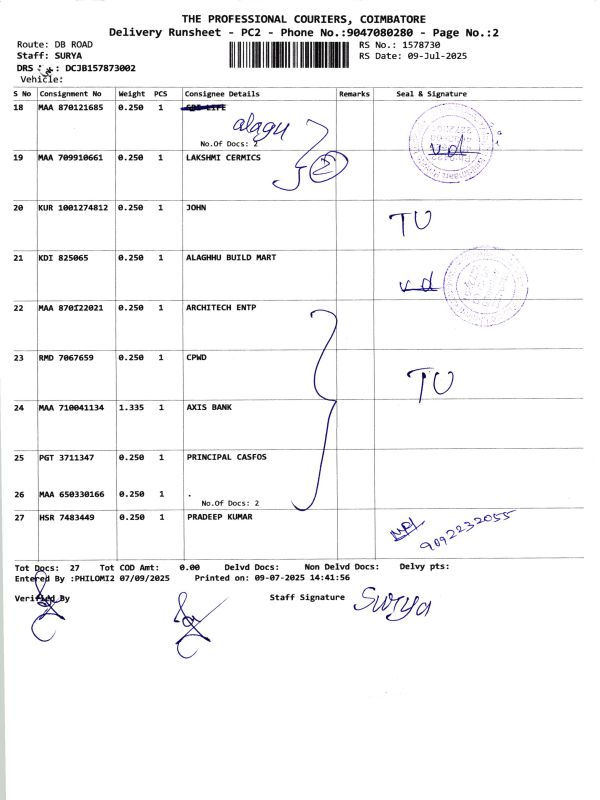 THE PROFESSIONAL COURIERS, COIMBATORE
Delivery Runsheet - PC2 - Phone No.:9047080280 - Page No.:2
Route: DB ROAD RS No.: 1578730
Staff: SURYA RS Date: 09-Jul-2025
DRS : DCJB157873002
Vehicle:
S No Consignment No Weight PCS Consignee Details Remarks Seal & Signature
18 MAA 870121685 0.250 1
alagu
No.Of Docs: 2
19 MAA 709910661 0.250 1 LAKSHMI CERMICS 2
20 KUR 1001274812 0.250 1 JOHN TU
21 KDI 825065 0.250 1 ALAGHHU BUILD MART
22 MAA 870122021 0.250 1 ARCHITECH ENTP
23 RMD 7067659 0.250 1 CPWD TU
24 MAA 710041134 1.335 1 AXIS BANK
25 PGT 3711347 0.250 1 PRINCIPAL CASFOS
26 MAA 650330166 0.250 1 .
No.Of Docs: 2
27 HSR 7483449 0.250 1 PRADEEP KUMAR
9092232055
Tot Docs: 27 Tot COD Amt: 0.00 Delvd Docs: Non Delvd Docs: Delvy pts:
Entered By :PHILOMI2 07/09/2025 Printed on: 09-07-2025 14:41:56
Verified By Staff Signature Surya